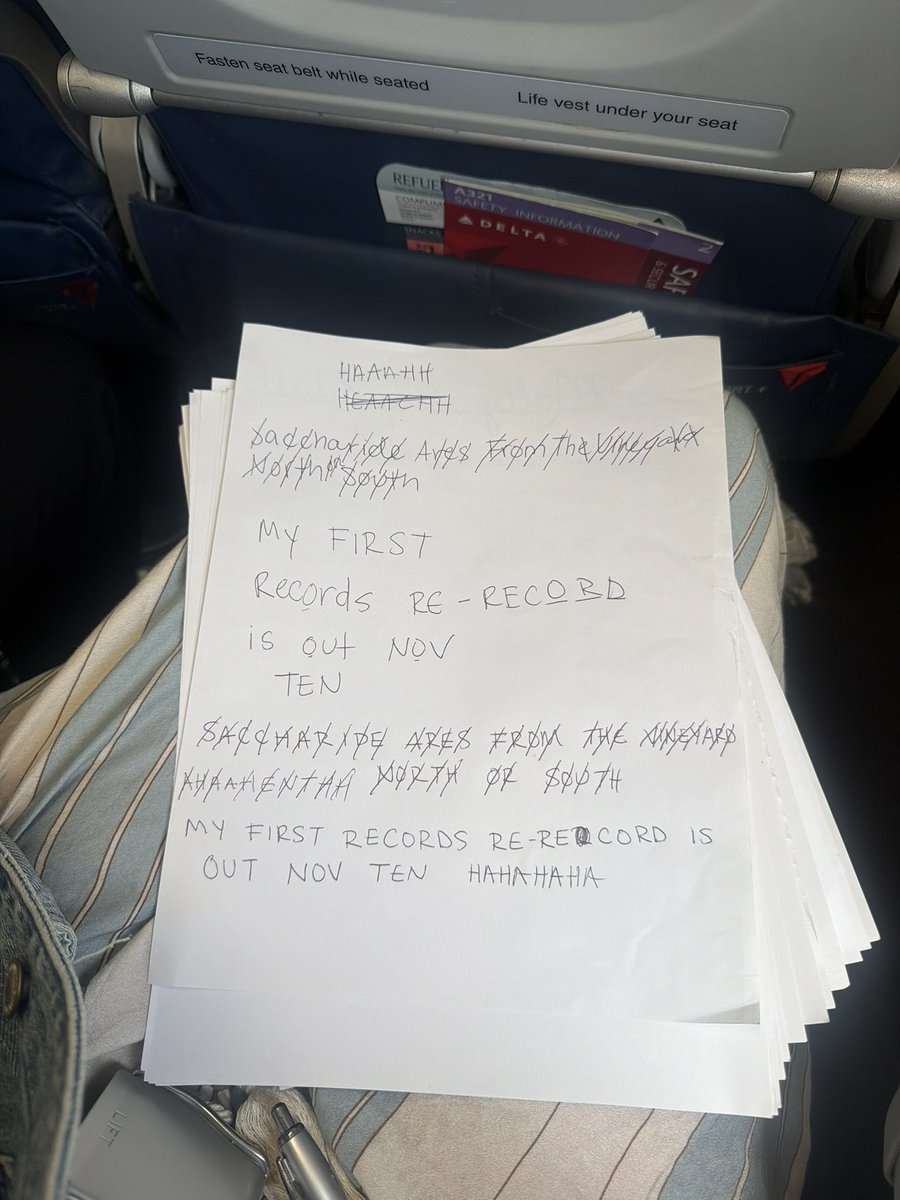 Fasten seat belt while seated
Life vest under your seat
REFUE
COMPLIM
SNACKS
A321
SAFETY INFORMATION
DELTA
2
SAF
& SECUR
HAAAHH
HEAACHH
Saccharide Ares From the Vineyard
North or South
My FIRST
Records RE-RECORD
is out NOV
TEN
SACCHARIDE ARES FROM THE VINEYARD
AHAAHENTHA NORTH OF SOUTH
MY FIRST RECORDS RE-RECORD IS
OUT NOV TEN HAHAHAHA
LIFT